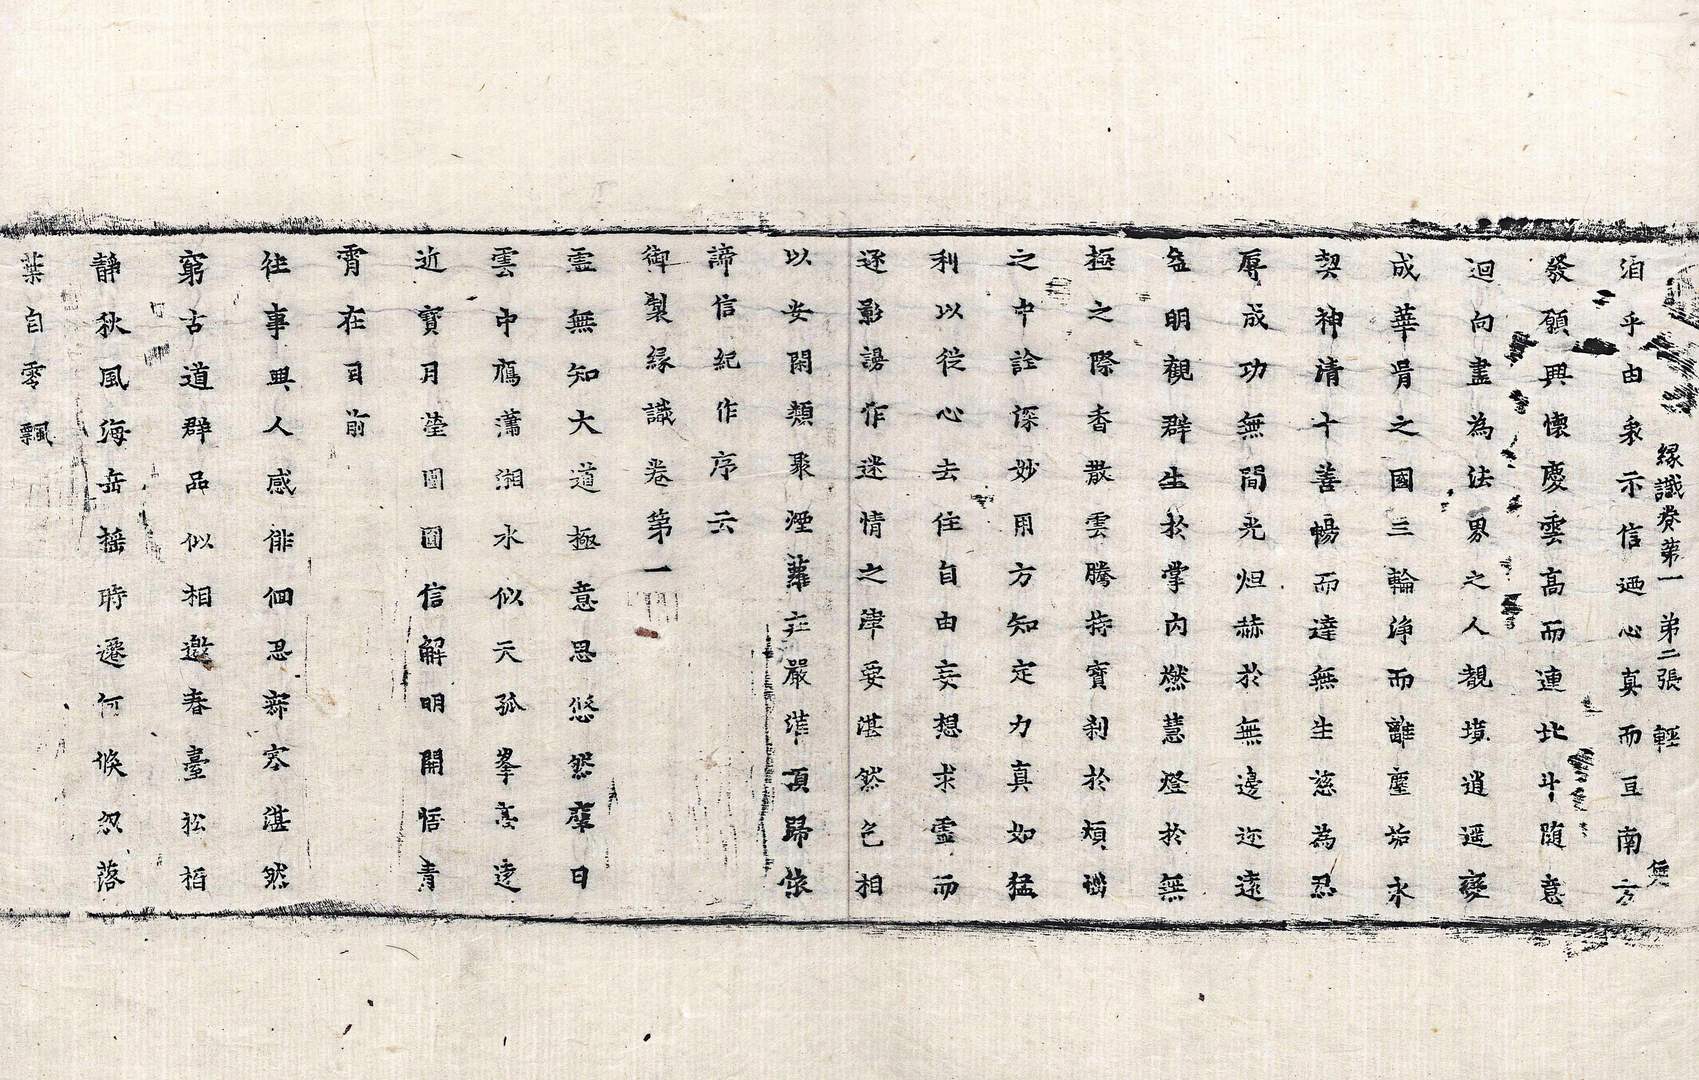 緣識卷第一 第二張 輕
洎乎由衷示信迺心真而亘南方
發願興懷慶雲高而連北斗随意
迴向盡為法界之人覩境逍遥變
成華胥之國三輪淨而離塵垢永
契神清十善暢而達無生慈為忍
辱成功無間光烜赫於無邊迩遠
益明觀群生於掌内燃慧燈於無
極之際香散雲騰持寳刹於煩惱
之中詮深妙用方知定力真如猛
利以從心去住自由妄想求靈而
逐影謗作迷情之津要湛然色相
以安閑類聚湮蘿庄嚴灌頂歸依
諦信紀作序云
御製緣識卷第一
靈無知大道極意思悠然塵日
雲中鴈瀟湘水似天孤峯高遠
近寳月瑩圓圓信解明開悟青
霄在目前
往事興人感徘佪忍寂寥湛然
窮古道群品似相邀春臺松栢
静秋風海岳揺時遷何倏忽落
葉自零飄